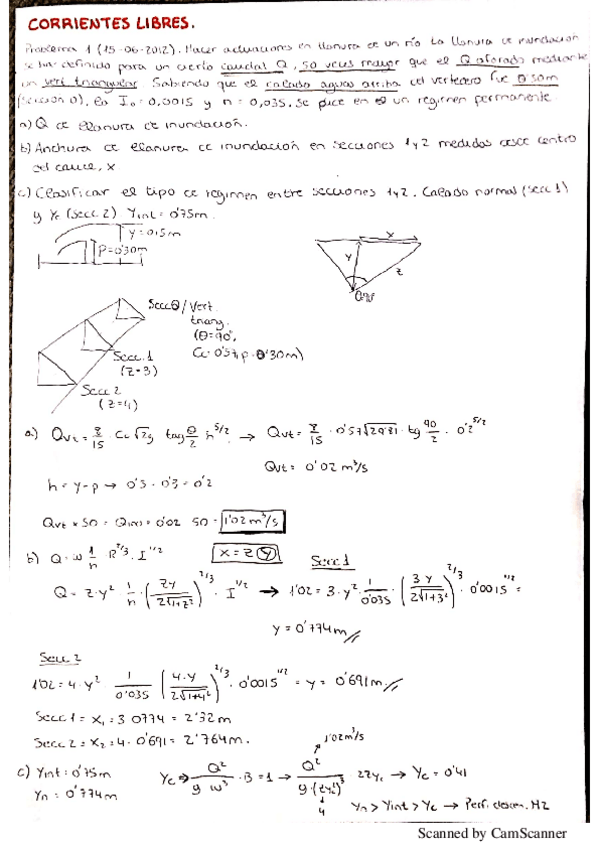 CORRIENTES LIBRES.
Problema 1 (15-06-2012). Hacer actuaciones en llanura de un río. La llanura de inundación
se ha definido para un cierto caudal Q, 50 veces mayor que el Q aforado mediante
un vert. triangular. Sabiendo que el calado aguas arriba del vertedero fue 0'50m
(sección 0), la I₀=0,0015 y n=0,035. Se pide en el un regimen permanente.
a) Q de llanura de inundación.
b) Anchura de llanura de inundación en secciones 1 y 2 medidos desde centro
del cauce, x
c) Clasificar el tipo de regimen entre secciones 1 y 2. Calado normal (secc 1)
y Yc (secc. 2) Yint = 0'75m.
y=0.5m
P=0'30m
x
y
z
Secc 0 / Vert.
triang.
(θ=90°,
Cc=0'57, p=0'30m)
Secc. 1
(z=3)
Secc 2
(z=4)
a) Qvt = 8/15 · Cc √2g tag θ/2 h^5/2 → Qvt = 8/15 · 0'57 √2·9'81 · tg 90/2 · 0'2^5/2
Qvt = 0'02 m³/s
h = y-p → 0'5 - 0'3 = 0'2
Qvt × 50 = = 0'02 · 50 = 1'02 m³/s
b) Q = ω 1/n · R^2/3 · I^1/2 x = z y Secc 1
Q = z·y² · 1/n · (zy / 2√1+z²)^2/3 · I^1/2 → 1'02 = 3·y² · 1/0'035 · (3y / 2√1+3²)^2/3 · 0'0015^1/2 =
y = 0'774m
Secc 2
1'02 = 4·y² · 1/0'035 (4·y / 2√1+4²)^2/3 · 0'0015^1/2 = y = 0'691m
Secc 1 = x₁ = 3·0'774 = 2'32m
Secc 2 = x₂ = 4·0'691 = 2'764m.
1'02 m³/s
c) Yint = 0'75m Yc → Q²/g·ω³ · B = 1 → Q²/g·(zy²)³ 2zyc → Yc = 0'41
Yn = 0'774m
4
Yn > Yint > Yc → Perf. descen. M2
Scanned by CamScanner